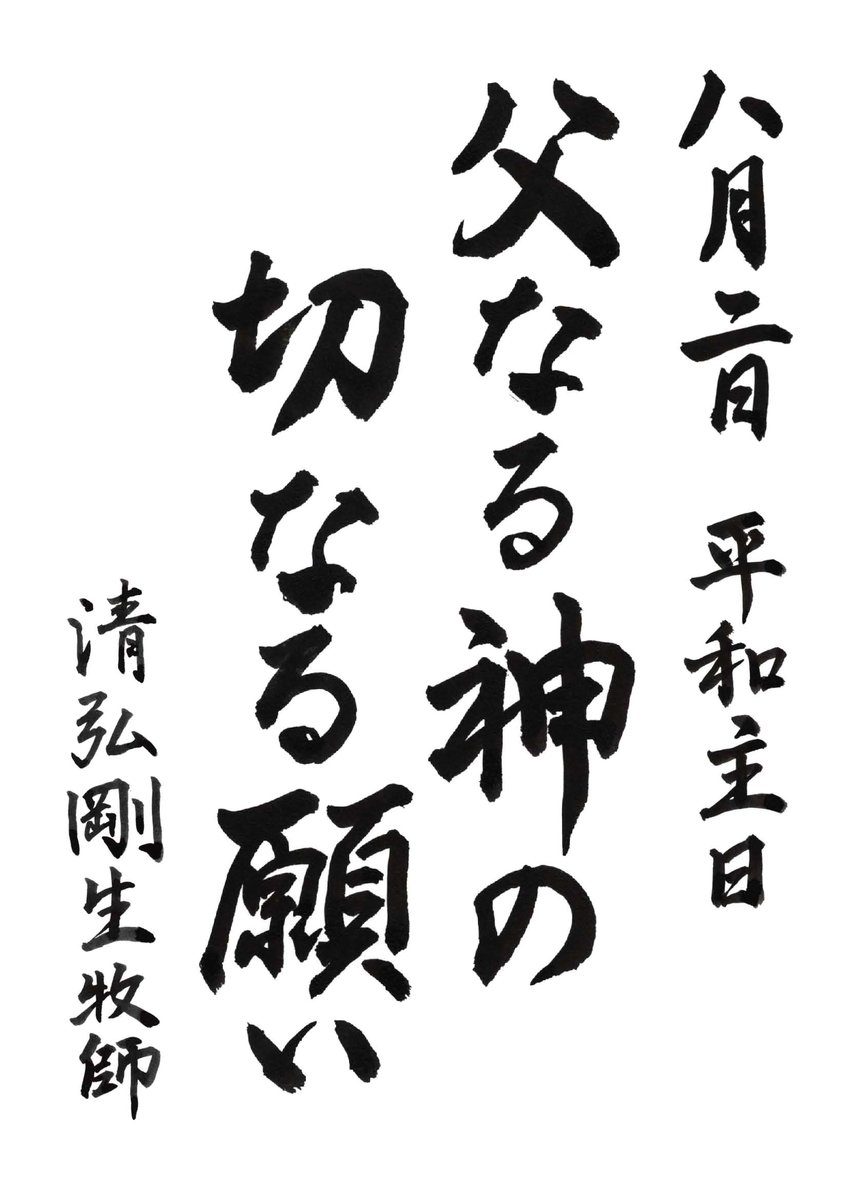 八月二日 平和主日
父なる神の
切なる願い
清弘剛生牧師